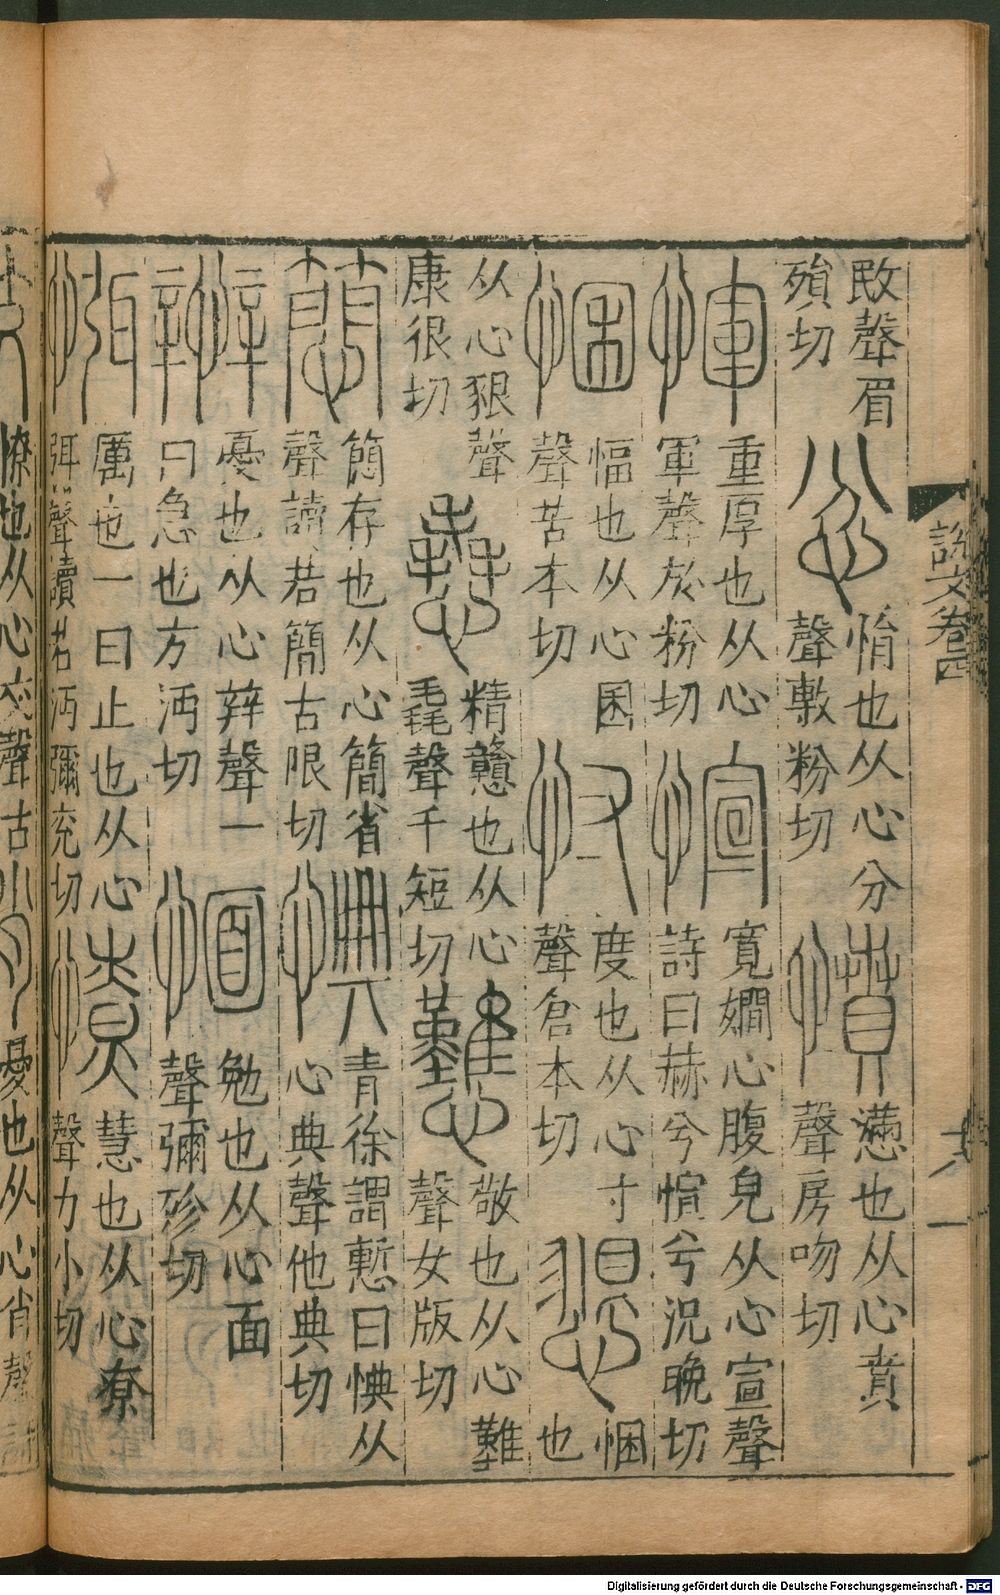 敃聲眉
殞切
忿
悁也从心分
聲敷粉切
憤
懣也从心賁
聲房吻切
惲
重厚也从心
軍聲於粉切
愃
寬嫺心腹皃从心宣聲
詩曰赫兮愃兮況晚切
悃
愊也从心困
聲苦本切
忖
度也从心寸
聲倉本切
懇
悃
也
从心豤聲
康很切
㥶
精戇也从心
毳聲千短切
戁
敬也从心難
聲女版切
簡存也从心簡省
聲讀若簡古限切
㥏
青徐謂慙曰㥏从
心典聲他典切
憂也从心辡聲一
曰急也方沔切
愐
勉也从心面
聲彌殄切
㥝
厲也一曰止也从心
弭聲讀若沔彌兖切
憭
慧也从心尞
聲力小切
憭也从心交聲古
憂也从心肖聲詩
說文卷四
Digitalisierung gefördert durch die Deutsche Forschungsgemeinschaft - DFG